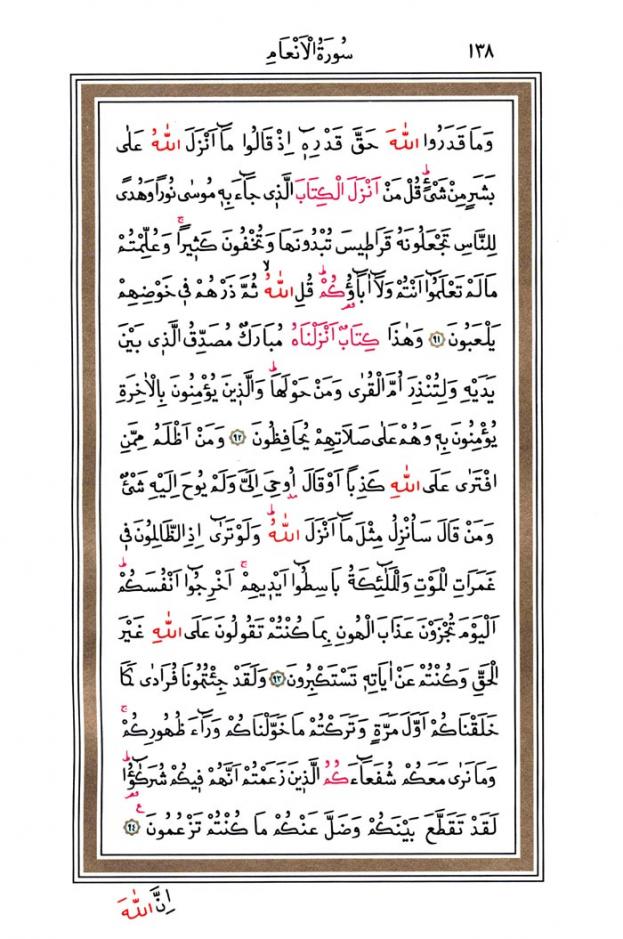 ١٣٨ سُورَةُ الْاَنْعَامِ
وَمَا قَدَرُوا اللّٰهَ حَقَّ قَدْرِه۪ٓ اِذْ قَالُوا مَٓا اَنْزَلَ اللّٰهُ عَلٰى
بَشَرٍ مِنْ شَيْءٍۜ قُلْ مَنْ اَنْزَلَ الْكِتَابَ الَّذ۪ي جَٓاءَ بِه۪ مُوسٰى نُورًا وَهُدًى
لِلنَّاسِ تَجْعَلُونَهُ قَرَاط۪يسَ تُبْدُونَهَا وَتُخْفُونَ كَث۪يرًاۚ وَعُلِّمْتُمْ
مَا لَمْ تَعْلَمُٓوا اَنْتُمْ وَلَٓا اٰبَٓاؤُ۬كُمْۜ قُلِ اللّٰهُۙ ثُمَّ ذَرْهُمْ ف۪ي خَوْضِهِمْ
يَلْعَبُونَ ﴿٩١﴾ وَهٰذَا كِتَابٌ اَنْزَلْنَاهُ مُبَارَكٌ مُصَدِّقُ الَّذ۪ي بَيْنَ
يَدَيْهِ وَلِتُنْذِرَ اُمَّ الْقُرٰى وَمَنْ حَوْلَهَاۜ وَالَّذ۪ينَ يُؤْمِنُونَ بِالْاٰخِرَةِ
يُؤْمِنُونَ بِه۪ وَهُمْ عَلٰى صَلَاتِهِمْ يُحَافِظُونَ ﴿٩٢﴾ وَمَنْ اَظْلَمُ مِمَّنِ
افْتَرٰى عَلَى اللّٰهِ كَذِبًا اَوْ قَالَ اُو۫حِيَ اِلَيَّ وَلَمْ يُوحَ اِلَيْهِ شَيْءٌ
وَمَنْ قَالَ سَاُنْزِلُ مِثْلَ مَٓا اَنْزَلَ اللّٰهُۜ وَلَوْ تَرٰٓى اِذِ الظَّالِمُونَ ف۪ي
غَمَرَاتِ الْمَوْتِ وَالْمَلٰٓئِكَةُ بَاسِطُٓوا اَيْد۪يهِمْۚ اَخْرِجُٓوا اَنْفُسَكُمْۜ
اَلْيَوْمَ تُجْزَوْنَ عَذَابَ الْهُونِ بِمَا كُنْتُمْ تَقُولُونَ عَلَى اللّٰهِ غَيْرَ
الْحَقِّ وَكُنْتُمْ عَنْ اٰيَاتِه۪ تَسْتَكْبِرُونَ ﴿٩٣﴾ وَلَقَدْ جِئْتُمُونَا فُرَادٰى كَمَا
خَلَقْنَاكُمْ اَوَّلَ مَرَّةٍ وَتَرَكْتُمْ مَا خَوَّلْنَاكُمْ وَرَٓاءَ ظُهُورِكُمْۚ
وَمَا نَرٰى مَعَكُمْ شُفَعَٓاءَكُمُ الَّذ۪ينَ زَعَمْتُمْ اَنَّهُمْ ف۪يكُمْ شُرَكٰٓؤُ۬اۜ
لَقَدْ تَقَطَّعَ بَيْنَكُمْ وَضَلَّ عَنْكُمْ مَا كُنْتُمْ تَزْعُمُونَ ﴿٩٤﴾
ع
اِنَّ اللّٰهَ